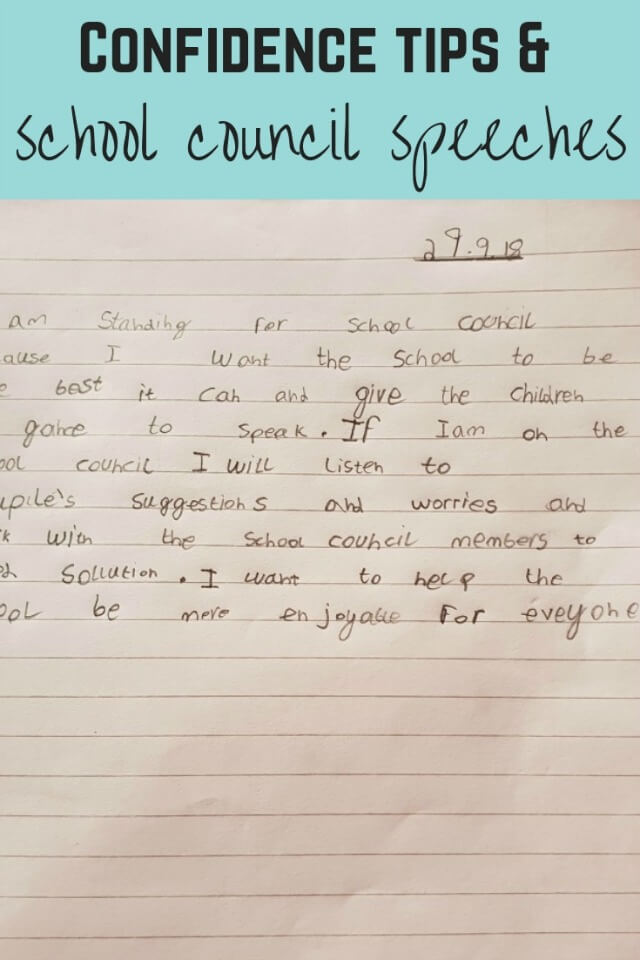 CONFIDENCE TIPS &
school council speeches
29.9.18
am Standing for School council
ause I want the School to be
e best it can and give the children
gance to speak. If I am on the
ool council I will listen to
upile's suggestions and worries and
k with the school council members to
Sollution. I want to help the
ool be more enjoyable for eveyone